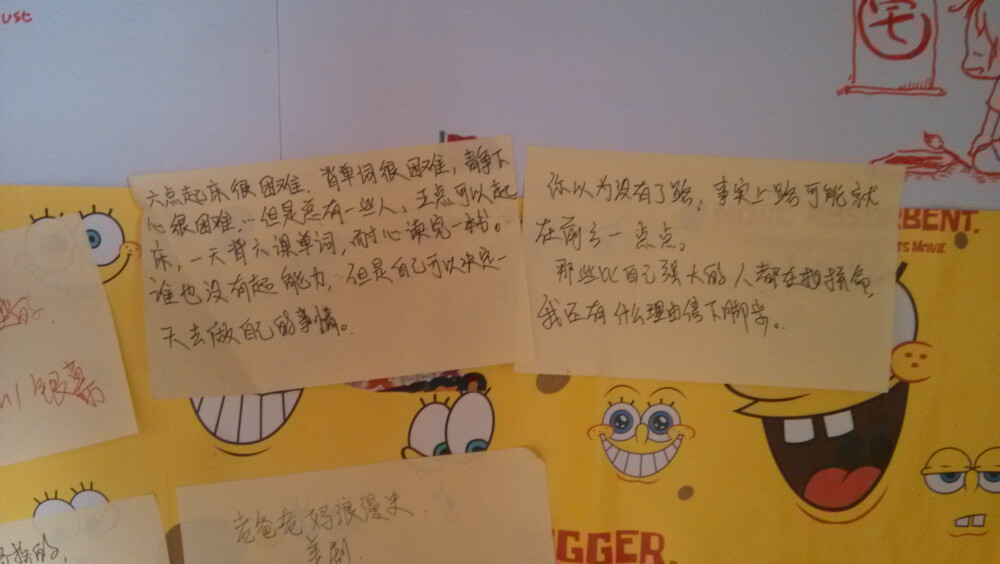 ust
宅
六点起床很困难，背单词很困难，静下
心很困难，…但是总有一些人，五点可以起
床，一天背六课单词，耐心读完一本书。
谁也没有超能力，但是自己可以决定一
天去做自己的事情。
你以为没有了路，事实上路可能就
在前方一点点。
那些比自己强大的人都在拼命，
我还有什么理由停下脚步。
RBENT.
TS MOVIE
老爸老妈浪漫史
美剧
GGER.